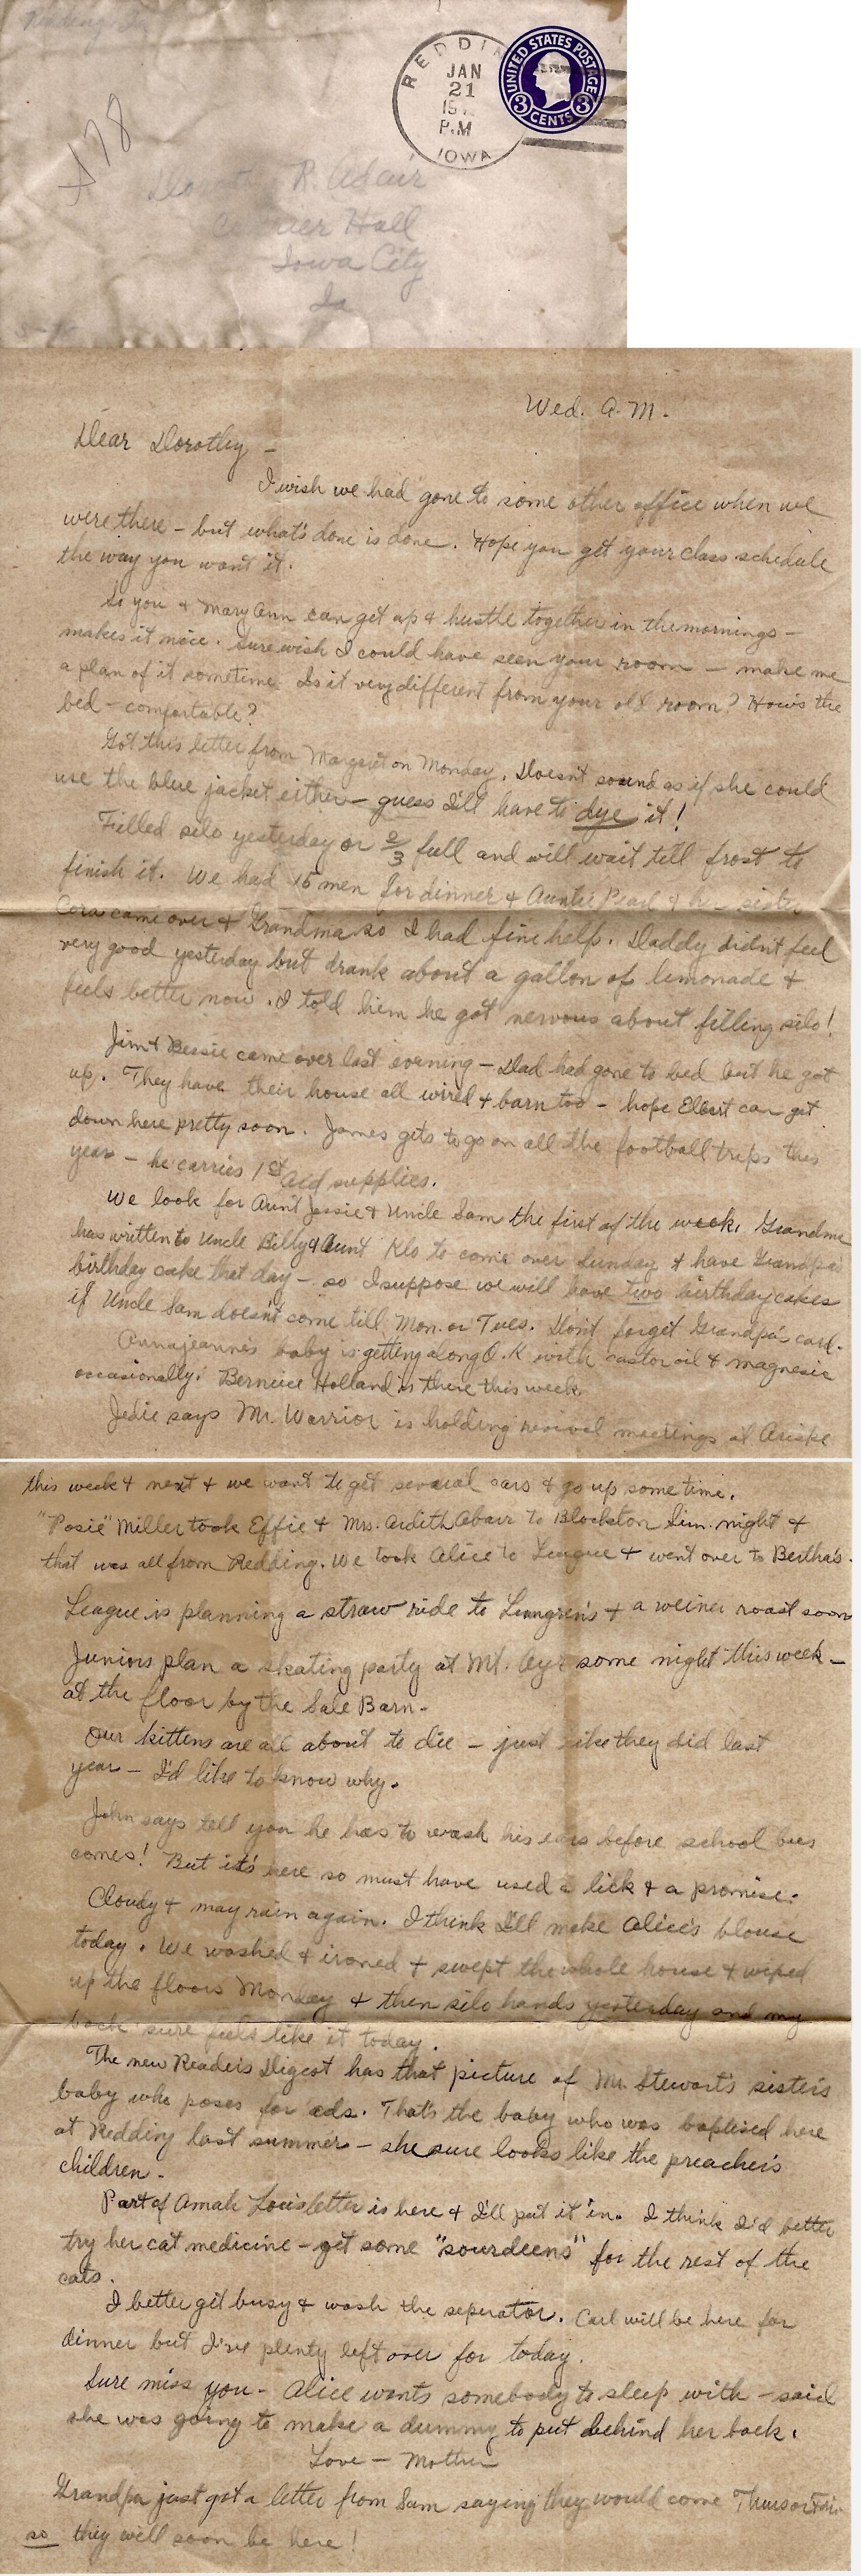 Redding Ia
REDDIN
JAN
21
19
P.M
IOWA
UNITED STATES POSTAGE
3 CENTS 3
A78
Dorothy R. Adair
Currier Hall
Iowa City
Ia
Wed. A.M.
Dear Dorothy -
I wish we had gone to some other office when we
were there - but what's done is done. Hope you get your class schedule
the way you want it.
So you & Mary Ann can get up & hustle together in the mornings -
makes it nice. Sure wish I could have seen your room - make me
a plan of it sometime. Is it very different from your old room? How's the
bed - comfortable?
Got this letter from Margaret on Monday. Doesn't sound as if she could
use the blue jacket either - guess I'll have to dye it!
Filled silo yesterday or 2/3 full and will wait till frost to
finish it. We had 15 men for dinner & Auntie Pearl & her sister
Cora came over & Grandma so I had fine help. Daddy didn't feel
very good yesterday but drank about a gallon of lemonade &
feels better now. I told him he got nervous about filling silo!
Jim & Bessie came over last evening - Dad had gone to bed but he got
up. They have their house all wired & barn too - hope Elbert can get
down here pretty soon. James gets to go on all the football trips this
year - he carries 1st aid supplies.
We look for Aunt Jessie & Uncle Sam the first of the week. Grandma
has written to Uncle Billy & Aunt Klo to come over Sunday & have Grandpa's
birthday cake that day - so I suppose we will have two birthday cakes
if Uncle Sam doesn't come till Mon. or Tues. Don't forget Grandpa's card.
Annajeanne's baby is getting along O.K with castor oil & magnesia
occasionally. Berniece Holland is there this week.
Jedie says Mr. Warrior is holding revival meetings at Arispe
this week & next & we want to get several cars & go up some time.
"Posie" Miller took Effie & Mrs. Ardith Abarr to Blockton Sun. night &
that was all from Redding. We took Alice to League & went over to Bertha's.
League is planning a straw ride to Lungren's & a weiner roast soon
Juniors plan a skating party at Mt. Ayr some night this week -
at the floor by the Sale Barn.
Our kittens are all about to die - just like they did last
year - I'd like to know why.
John says tell you he has to wash his ears before school bus
comes! But it's here so must have used a lick & a promise.
Cloudy & may rain again. I think I'll make Alice's blouse
today. We washed & ironed & swept the whole house & wiped
up the floors Monday & then silo hands yesterday and my
back sure feels like it today.
The new Reader's Digest has that picture of Mr. Stewart's sister's
baby who poses for ads. That's the baby who was baptised here
at Redding last summer - she sure looks like the preacher's
children -
Part of Amah Lou's letter is here & I'll put it in. I think I'd better
try her cat medicine - get some "sourdeens" for the rest of the
cats.
I better git busy & wash the seperator. Carl will be here for
dinner but I've plenty left over for today.
Sure miss you - Alice wants somebody to sleep with - said
she was going to make a dummy to put behind her back.
Love - Mother
Grandpa just got a letter from Sam saying they would come Thurs or Fri
so they will soon be here!